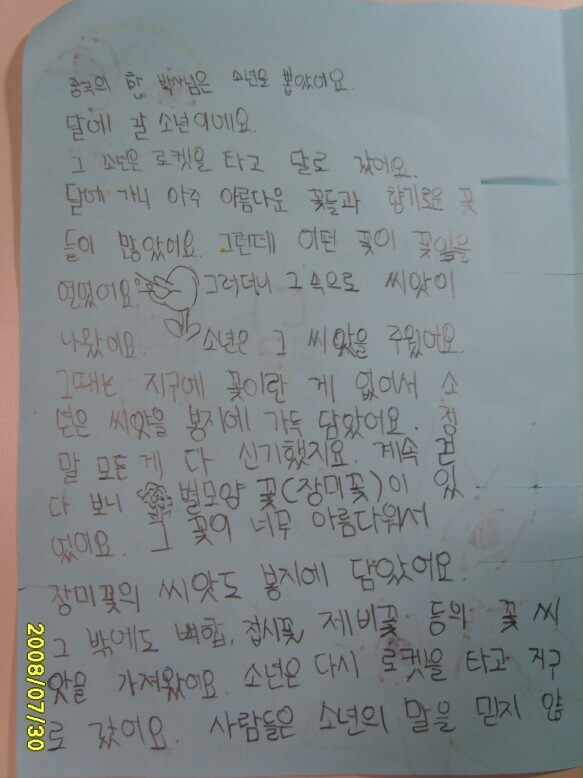 중국의 한 박사님은 소년을 뽑았어요.
달에 갈 소년이에요.
그 소년은 로켓을 타고 달로 갔어요.
달에 가니 아주 아름다운 꽃들과 향기로운 꽃
들이 많았어요. 그런데 어떤 꽃이 꽃잎을
열었어요. 그러더니 그 속으로 씨앗이
나왔어요. 소년은 그 씨앗을 주웠어요.
그때는 지구에 꽃이란 게 없어서 소
년은 씨앗을 봉지에 가득 담았어요. 정
말 모든 게 다 신기했지요. 계속 걷
다 보니 별모양 꽃(장미꽃)이 있
었어요. 그 꽃이 너무 아름다워서
장미꽃의 씨앗도 봉지에 담았어요.
그 밖에도 백합, 접시꽃, 제비꽃 등의 꽃 씨
앗을 가져왔어요. 소년은 다시 로켓을 타고 지구
로 갔어요. 사람들은 소년의 말을 믿지 않
2008/07/30